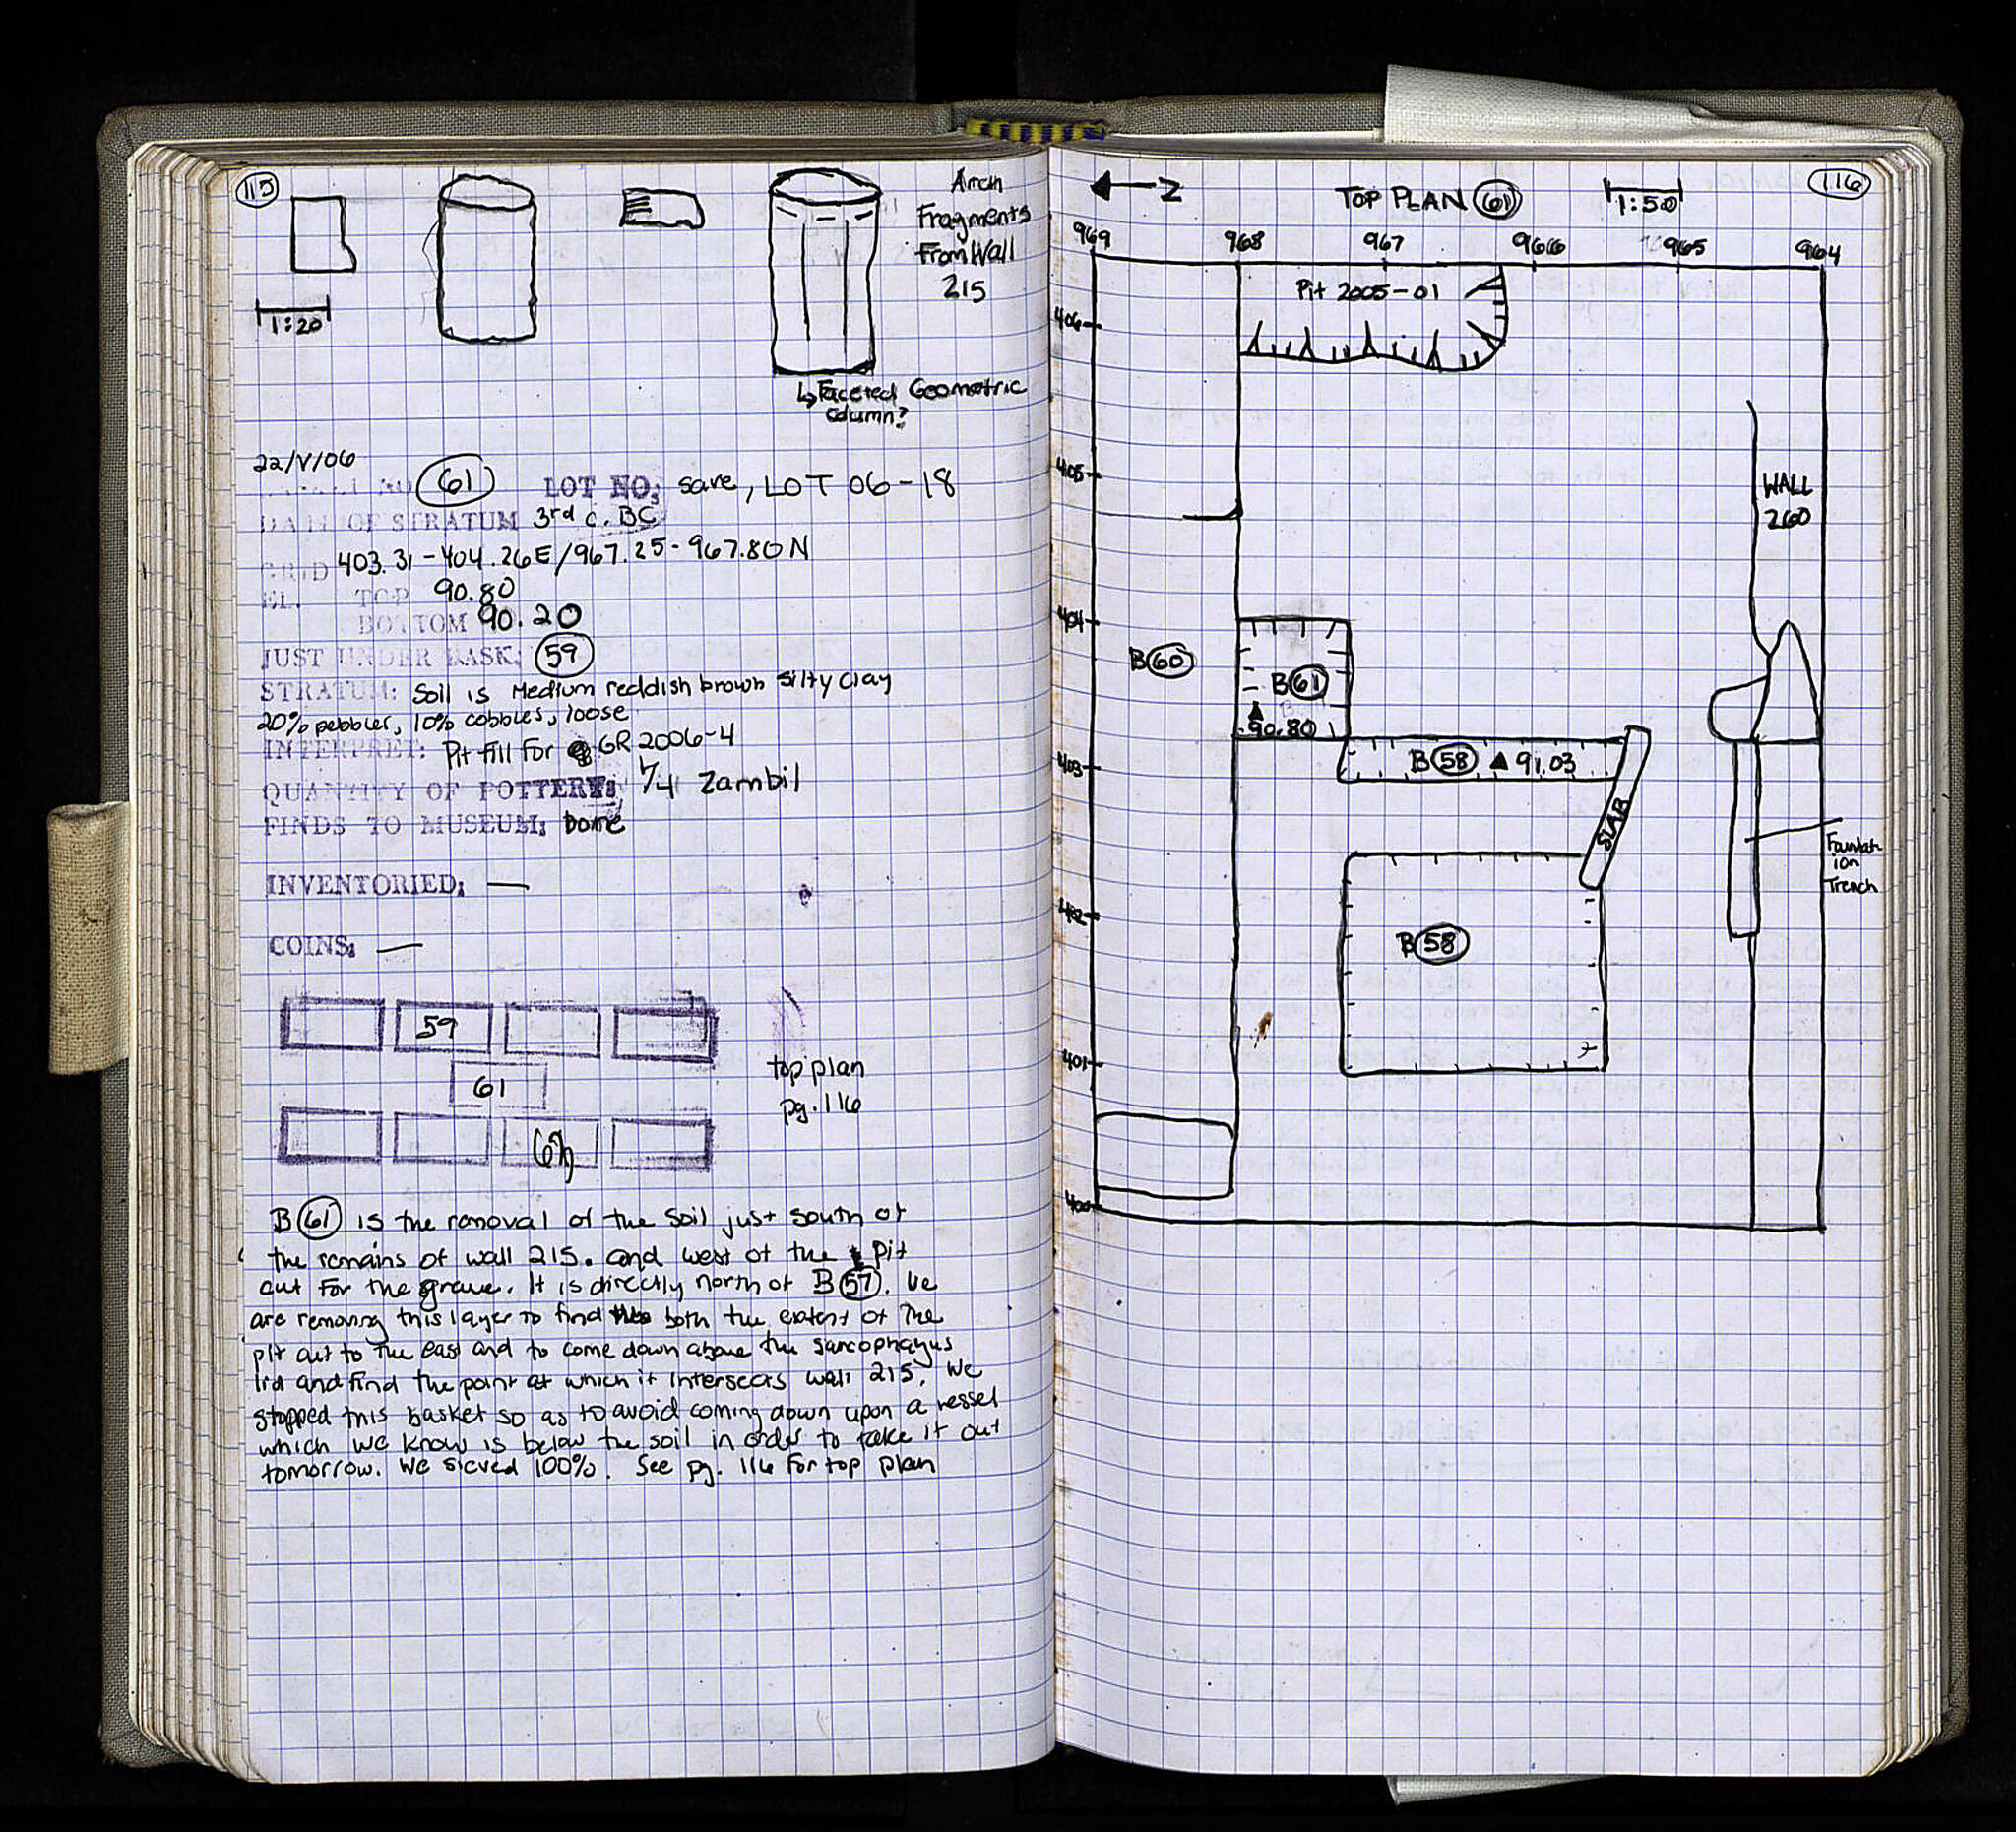 115
Arch
Fragments
From Wall
215
1:20
↳ Faceted Geometric
column?
22/V/06
61 LOT NO: save, LOT 06-18
DATE OF STRATUM 3rd c. BC
GRID 403.31-404.26E/967.25-967.80N
EL. TOP 90.80
BOTTOM 90.20
JUST UNDER BASK: 59
STRATUM: Soil is Medium reddish brown silty clay
20% pebbles, 10% cobbles, loose
INTERPRET: Pit fill for GR 2006-4
QUANTITY OF POTTERY: 1/4 Zambil
FINDS TO MUSEUM: bone
INVENTORIED: —
COINS: —
59
61
top plan
pg. 116
B 61 is the removal of the soil just south of
the remains of wall 215. and west of the pit
cut for the grave. It is directly north of B 57. We
are removing this layer to find both the extent of the
pit cut to the east and to come down above the sarcophagus
lid and find the point at which it intersects wall 215. We
stopped this basket so as to avoid coming down upon a vessel
which we know is below the soil in order to take it out
tomorrow. We sieved 100%. See pg. 116 for top plan
116
← Z TOP PLAN 61 1:50
969 968 967 966 965 964
Pit 2005-01
406
405
WALL
260
404
B 60
B 61
90.80
403
B 58 ▲ 91.03
SLAB
Foundat
ion
Trench
402
B 58
401
400